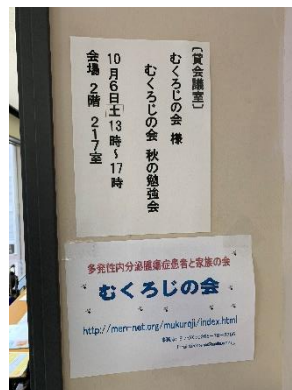 〔貸会議室〕
むくろじの会 様
むくろじの会 秋の勉強会
10月6日(土)13時~17時
会場 2階 217室
多発性内分泌腫瘍症患者と家族の会
むくろじの会
http://men-net.org/mukuroji/index.html